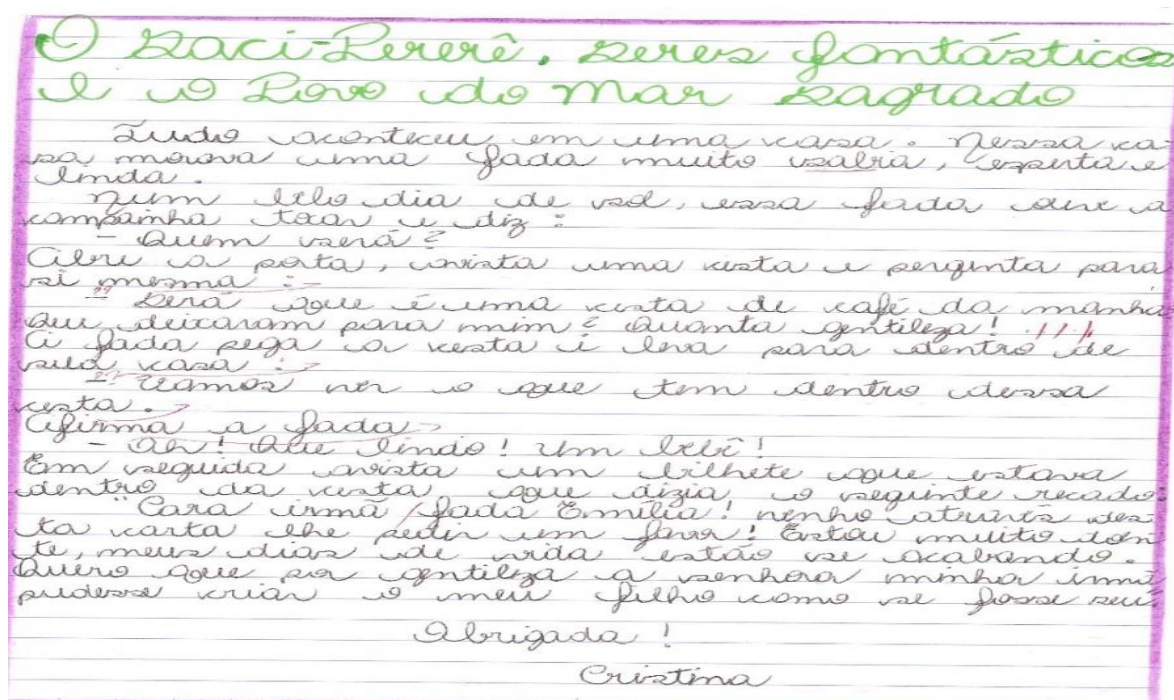 O Saci-Pererê, seres fantásticos
e o Povo do Mar Sagrado
Tudo aconteceu em uma casa. Nessa ca-
sa morava uma fada muito sabia, esperta e
linda.
Num belo dia de sol, essa fada ouve a
campainha tocar e diz:
- Quem será?
Abre a porta, avista uma cesta e pergunta para
si mesma:
- Será que é uma cesta de café da manhã
que deixaram para mim? Quanta gentileza!
A fada pega a cesta e leva para dentro de
sua casa:
- Vamos ver o que tem dentro dessa
cesta.
Afirma a fada
- Oh! Que lindo! Um bebê!
Em seguida avista um bilhete que estava
dentro da cesta, que dizia o seguinte recado:
"Cara irmã fada Emília! Venho através des-
ta carta lhe pedir um favor! Estou muito doen
te, meus dias de vida estão se acabando.
Quero que por gentileza a senhora minha irmã
pudesse criar o meu filho como se fosse seu.
Obrigada!
Cristina